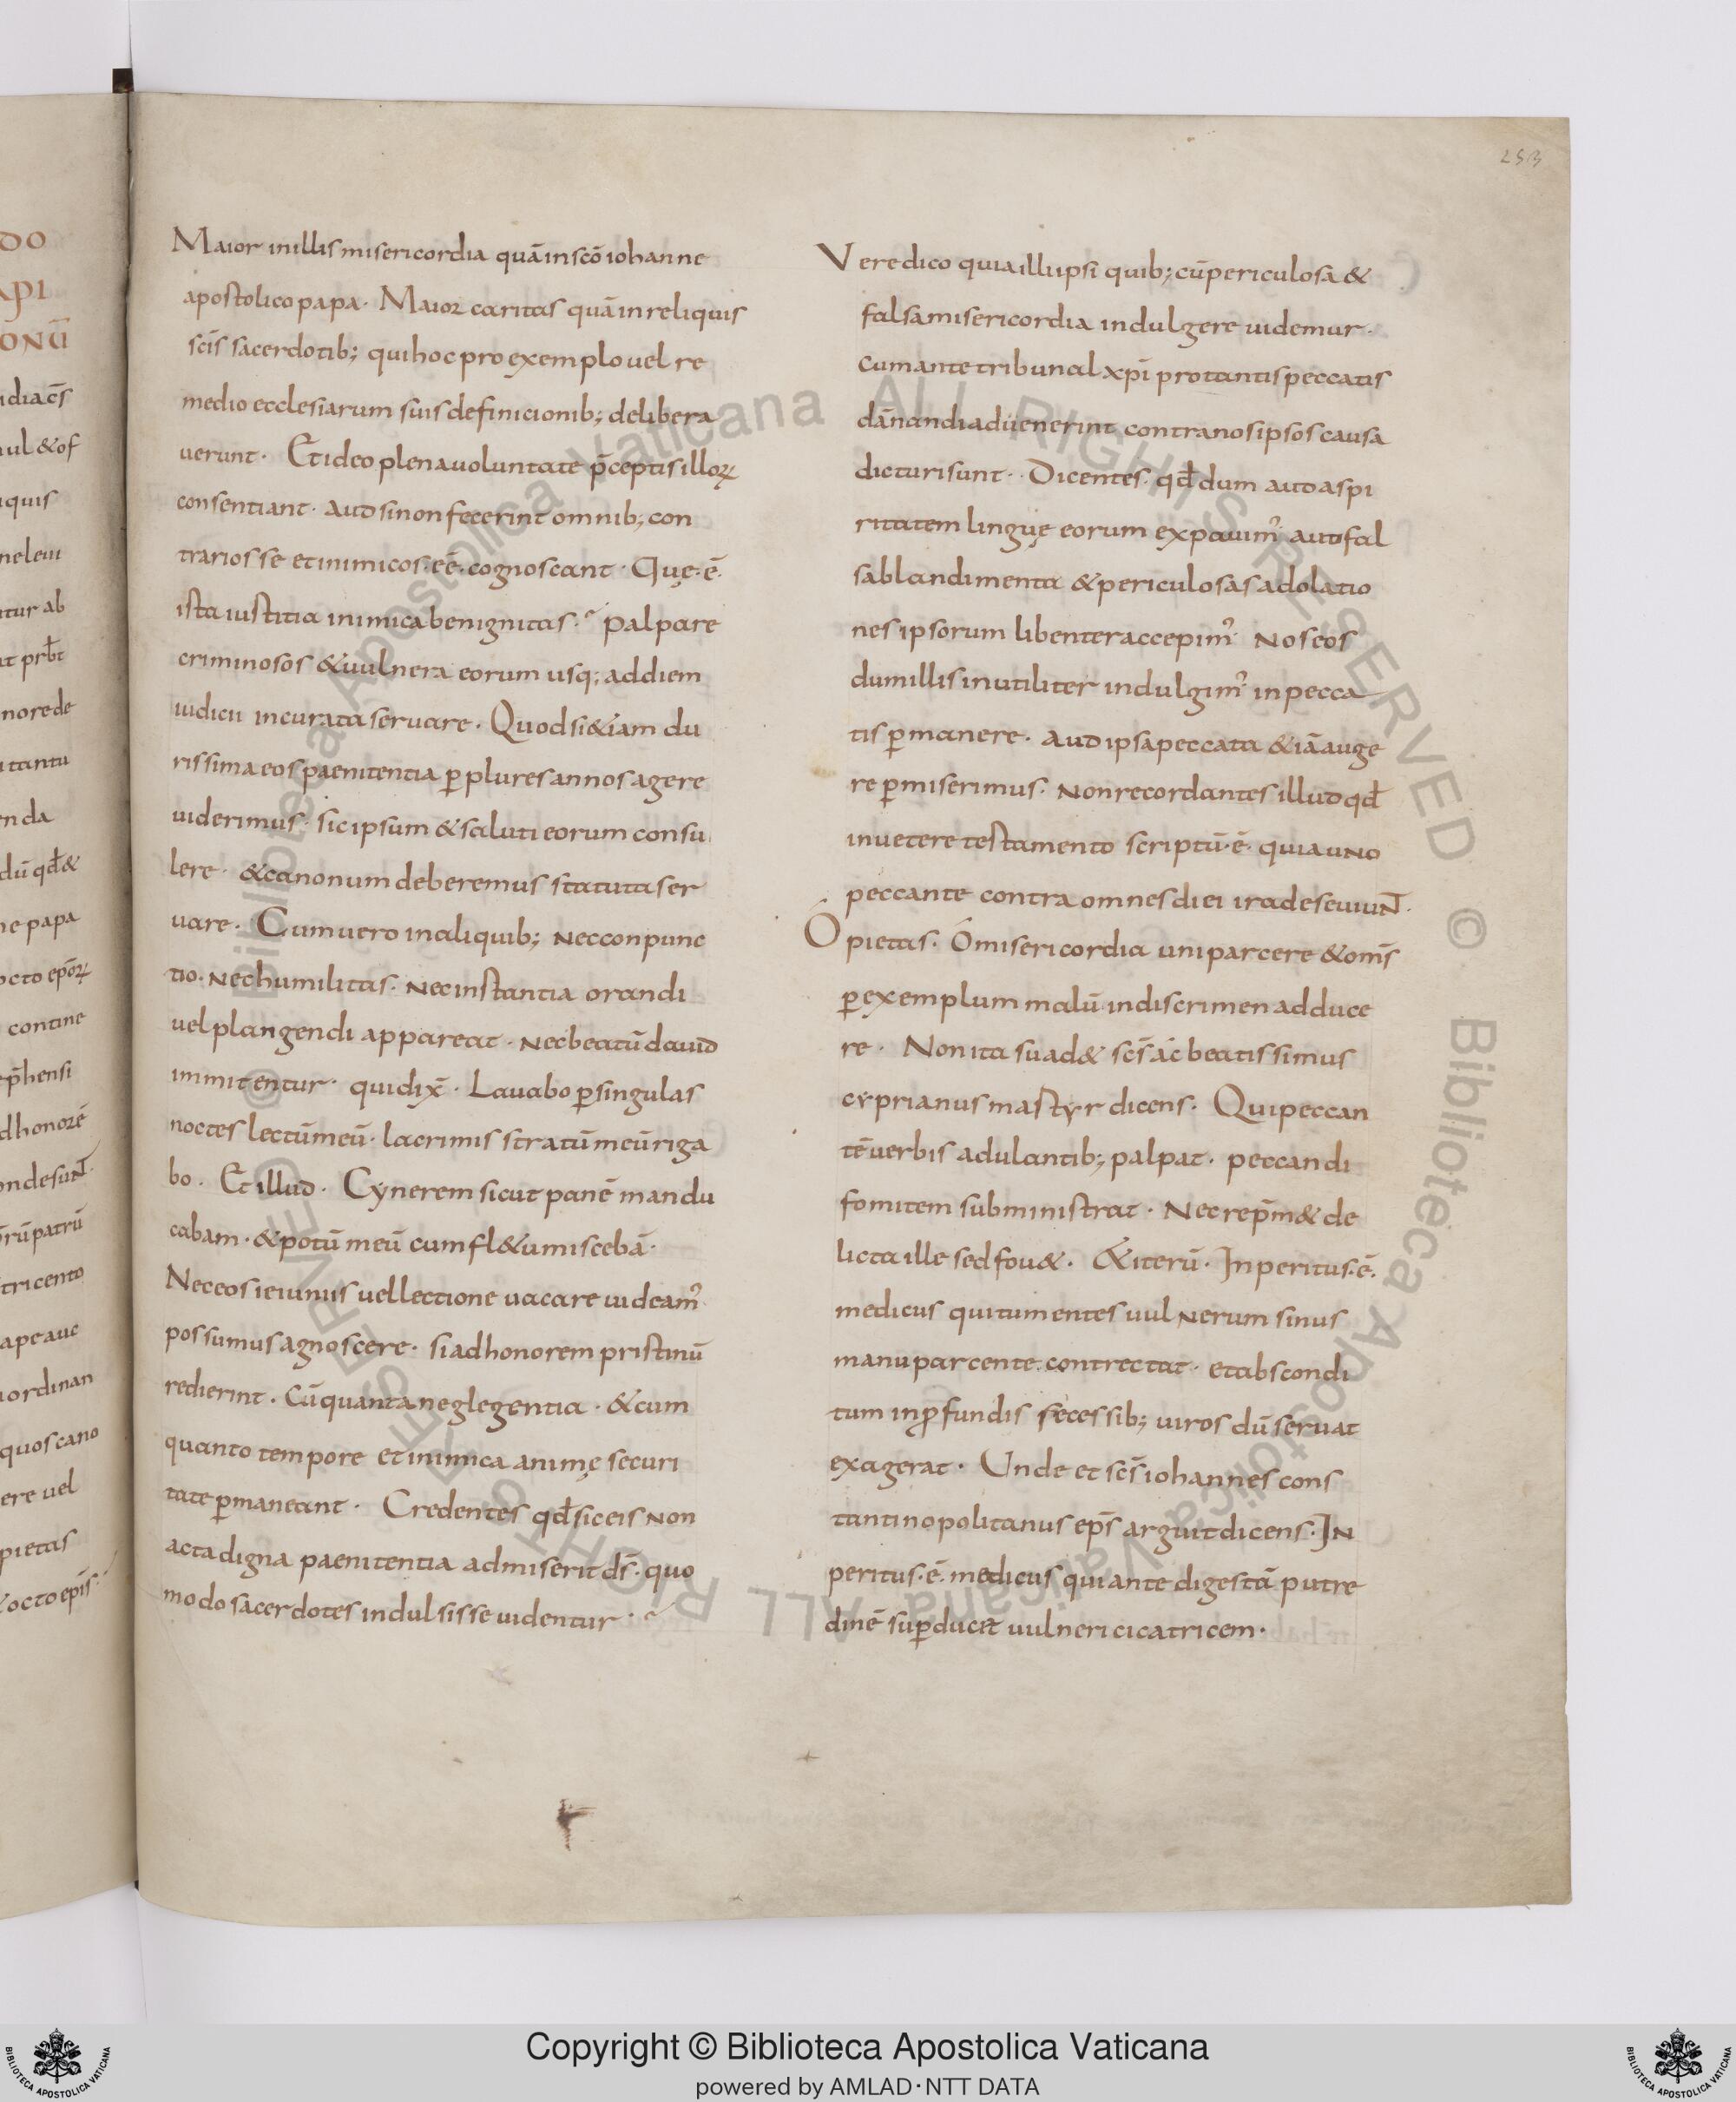 253
DO
API
ONU̅
idiac̅s
iul &of
iquis
neleui
itur ab
it prb̅t
norede
i tantu
enda
du̅ qd̅&
ne papa
octo ep̅oꝝ
contine
ep̅hensi
dhonore̅
ondesuNT·
or̅u̅patru̅
tricento
apeauc
iordinan
quoscano
ere uel
pietas
octoepi̅s·
Maior inillismisericordia qua̅insc̅o iohanne
apostolicopapa· Maior caritas qua̅inreliquis
sc̅is sacerdotib; quihocproexemplouel re
medio ecclesiarum suisdefinicionib; delibera
uerunt· Etideo plenauoluntate p̅ceptisilloꝝ
consentiant· Autsinonfecerint omnib; con
trariosse etinimicos·ee̅·cognoscant· Quę·e̅·
ista iustitia inimicabenignitas· palpare
criminosos &uulnera eorum usq; addiem
iudicii incurataseruare· Quodsi&iam du
rissimaeospaenitentia ꝑpluresannosagere
uiderimus· sicipsum &saluti eorum consu
lere· &canonumdeberemus statutaser
uare· Cumuero inaliquib; necconpunc
tio· nechumilitas· necinstantia orandi
uelplangendi appareat· necbeatu̅dauid
immitentur· quidix̅· Lauabo ꝑsingulas
noctes lectu̅meu̅· lacrimis stratu̅meu̅riga
bo· Et illud· Cynerem sicut pane̅ mandu
cabam· &potu̅ meu̅ cumfl&umisceba̅·
Neceos ieiuniis uellectione uacare uideam᾽
possumusagnoscere· siadhonorem pristinu̅
redierint· Cu̅quantaneglegentia· &cum
quanto tempore etinimica animę securi
tateꝑmaneant· Credentes qd̅siceis non
acta digna paenitentia admiserit ds̅· quo
modo sacerdotes indulsisse uidentur·
Veredico quiailliipsi quib; cu̅periculosa &
falsamisericordia indulgere uidemur·
cumantetribunal xp̅i protantispeccatis
da̅nandiaduenerint contranosipsoscausa
dicturisunt· Dicentes· qd̅ dum autaspi
ritatem linguę eorum expauim᾽ autfal
sablandimenta &periculosasadolatio
nesipsorum libenteraccepim᾽ Noseos
dumillisinutiliter indulgim᾽ inpecca
tis ꝑmanere· Aut ipsapeccata &ia̅auge
re ꝑmiserimus· Nonrecordantes illudqd̅
inuetere testamento scriptu̅·e̅· quiauno
peccante contra omnesdiei iradeseuiuNT·
O pietas· O misericordia uniparcere &om̅s
ꝑexemplum malu̅indiscrimenadduce
re· Nonita suad& sc̅s ac beatissimus
cyprianusmastyr dicens· Quipeccan
te̅uerbis adulantib; palpat· peccandi
fomitem subministrat· Necrep̅m& de
licta ille sedfou&· &iteru̅· Inperitus·e̅·
medicus quitumentes uulnerum sinus
manuparcente·contrectat· etabscondi
tum inꝓfundis secessib; uiros du̅seruat
exagerat· Unde et sc̅s iohannes cons
tantinopolitanus ep̅s arguitdicens· In
peritus·e̅· medicus quiante digesta̅ putre
dine̅ suꝑducit uulneri cicatricem·
© Biblioteca Apostolica Vaticana ALL RIGHTS RESERVED
© Biblioteca Apostolica Vaticana ALL RIGHTS RESERVED
Copyright © Biblioteca Apostolica Vaticana
powered by AMLAD·NTT DATA
BIBLIOTECA APOSTOLICA VATICANA
BIBLIOTECA APOSTOLICA VATICANA